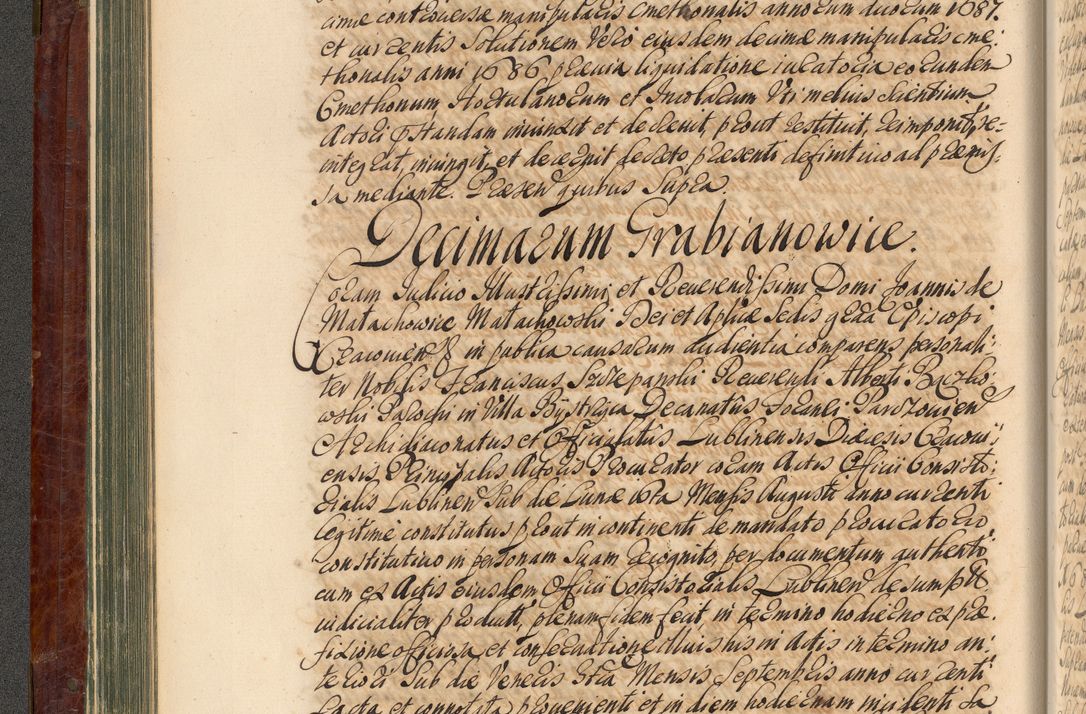 cimæ controversæ manipularis cmethonalis annorum duorum 1687.
et currentis Solutionem Vero eiusdem decimæ manipularis cme:
thonalis anni 1686 prævia liquidatione iuratoria eorundem
Cmethonum Hortulanorum et Incolarum Vti melius Scientium
Actori præstandam iniunxit et decrevit, prout restituit, reimponit, re-
integrat, iniungit, et decernit decreto præsenti definitivo ad præmis
sa mediante. Præsen quibus Supra.
Decimarum Grabianowice.
Coram Iudicio Illustrissimi et Reverendissimi Domi Joannis de
Małachowice Małachowski Dei et Aplicæ Sedis gratia Episcopi
Cracovien in publica causarum audientia comparens personali:
ter Nobilis Franciscus Szczepanski Reverendi Alberti Baczko:
wski Parochi in Villa Bystrzyca Decanatus Foranei Parczovien
Archidiaconatus et Officialatus Lublinensis Diæcesis Cracovi
ensis Principalis Actoris Procurator coram Actis Officii Consisto:
rialis Lublinen Sub die Lunæ Mensis Augusti anno currenti
legitime constitutus prout in continenti de mandato procuratorio
constitutivo in personam Suam recognito, per documentum authenti
cum ex Actis eiusdem Officii Consistorialis Lublinen desumptt
iudicialiter productt, plenam fidem fecit in termino hodierno ex præ
fixione officiosa et conservatione Iuris huius in Actis in termino an:
teriori Sub die Veneris Mensis Septembris anno currenti
facta et connotata provenienti et in diem hodiernam incidenti Sa